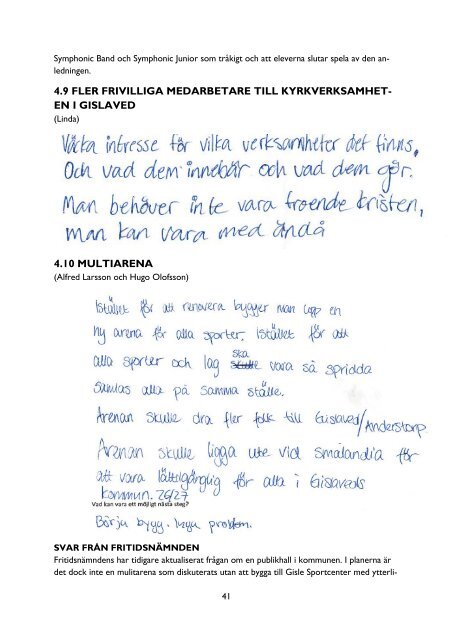 Symphonic Band och Symphonic Junior som tråkigt och att eleverna slutar spela av den an-
ledningen.
4.9 FLER FRIVILLIGA MEDARBETARE TILL KYRKVERKSAMHET-
EN I GISLAVED
(Linda)
Väcka intresse för vilka verksamheter det finns,
Och vad dem innebär och vad dem gör.
Man behöver inte vara troende kristen,
man kan vara med ändå
4.10 MULTIARENA
(Alfred Larsson och Hugo Olofsson)
Istället för att renovera bygger man upp en
ny arena för alla sporter. Istället för att
alla sporter och lag ska vara så spridda
samlas alla på samma ställe.
Arenan skulle dra fler folk till Gislaved/Anderstorp
Arenan skulle ligga ute vid smålandia för
att vara lättillgänglig för alla i Gislaveds
kommun. 26/27
Vad kan vara ett möjligt nästa steg?
Börja bygg. Inga problem.
SVAR FRÅN FRITIDSNÄMNDEN
Fritidsnämndens har tidigare aktualiserat frågan om en publikhall i kommunen. I planerna är
det dock inte en mulitarena som diskuterats utan att bygga till Gisle Sportcenter med ytterli-
41